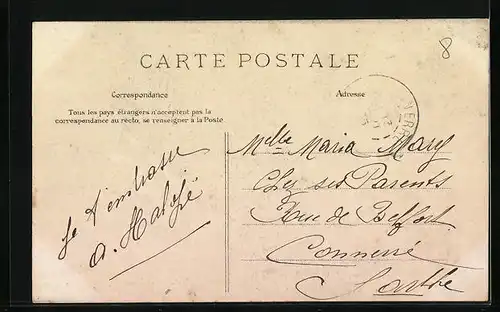 8
CARTE POSTALE
Correspondance
Adresse
Tous les pays étrangers n'acceptent pas la
correspondance au recto, se renseigner à la Poste
Je t'embrasse
Melle Maria Mary
Chez ses Parents
Rue de Belfort
Connerré
Sarthe